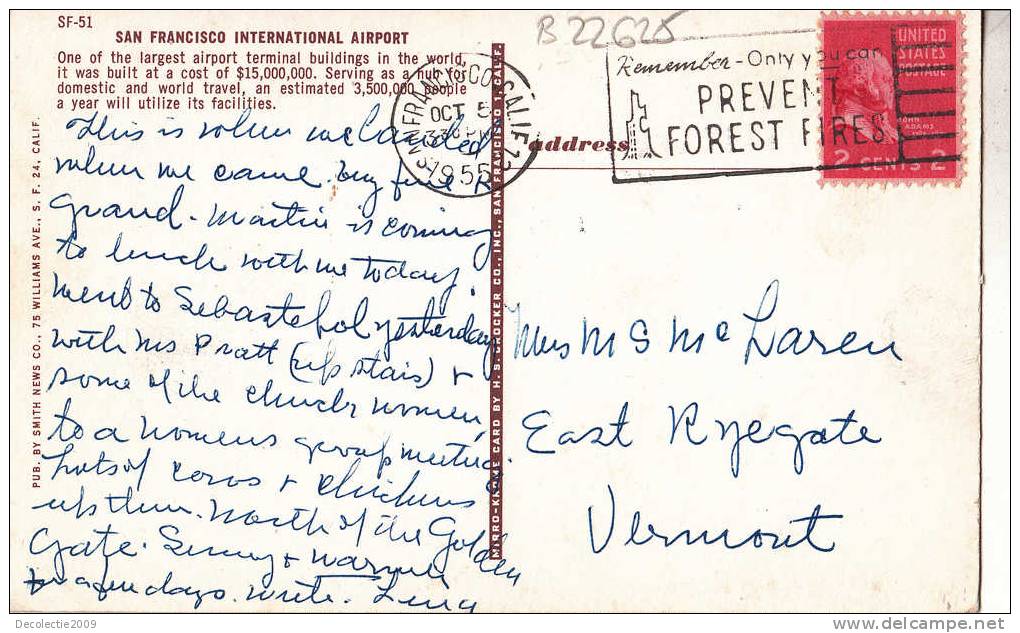 SF-51
SAN FRANCISCO INTERNATIONAL AIRPORT
One of the largest airport terminal buildings in the world,
it was built at a cost of $15,000,000. Serving as a hub for
domestic and world travel, an estimated 3,500,000 people
a year will utilize its facilities.
B 22625
SAN FRANCISCO, CALIF.
OCT 5
330 PM
1955
Remember - Only you can
PREVENT
FOREST FIRES
UNITED
STATES
POSTAGE
JOHN
ADAMS
2 CENTS 2
address
This is where we landed
when we came. Big fine &
grand. Martin is coming
to lunch with me today.
Went to Sebastopol yesterday
with Mrs Pratt (upstairs) &
some of the church women,
to a womens group meeting.
Lots of cows & chickens
up there. North of the Golden
Gate. Sunny & warmer
for a few days. Write. Lena
Mrs M S McLaren
East Ryegate
Vermont
PUB. BY SMITH NEWS CO., 75 WILLIAMS AVE., S. F. 24, CALIF.
MIRRO-KROME CARD BY H. S. CROCKER CO., INC., SAN FRANCISCO 1, CALIF.
Decolectie2009
delcampe.net